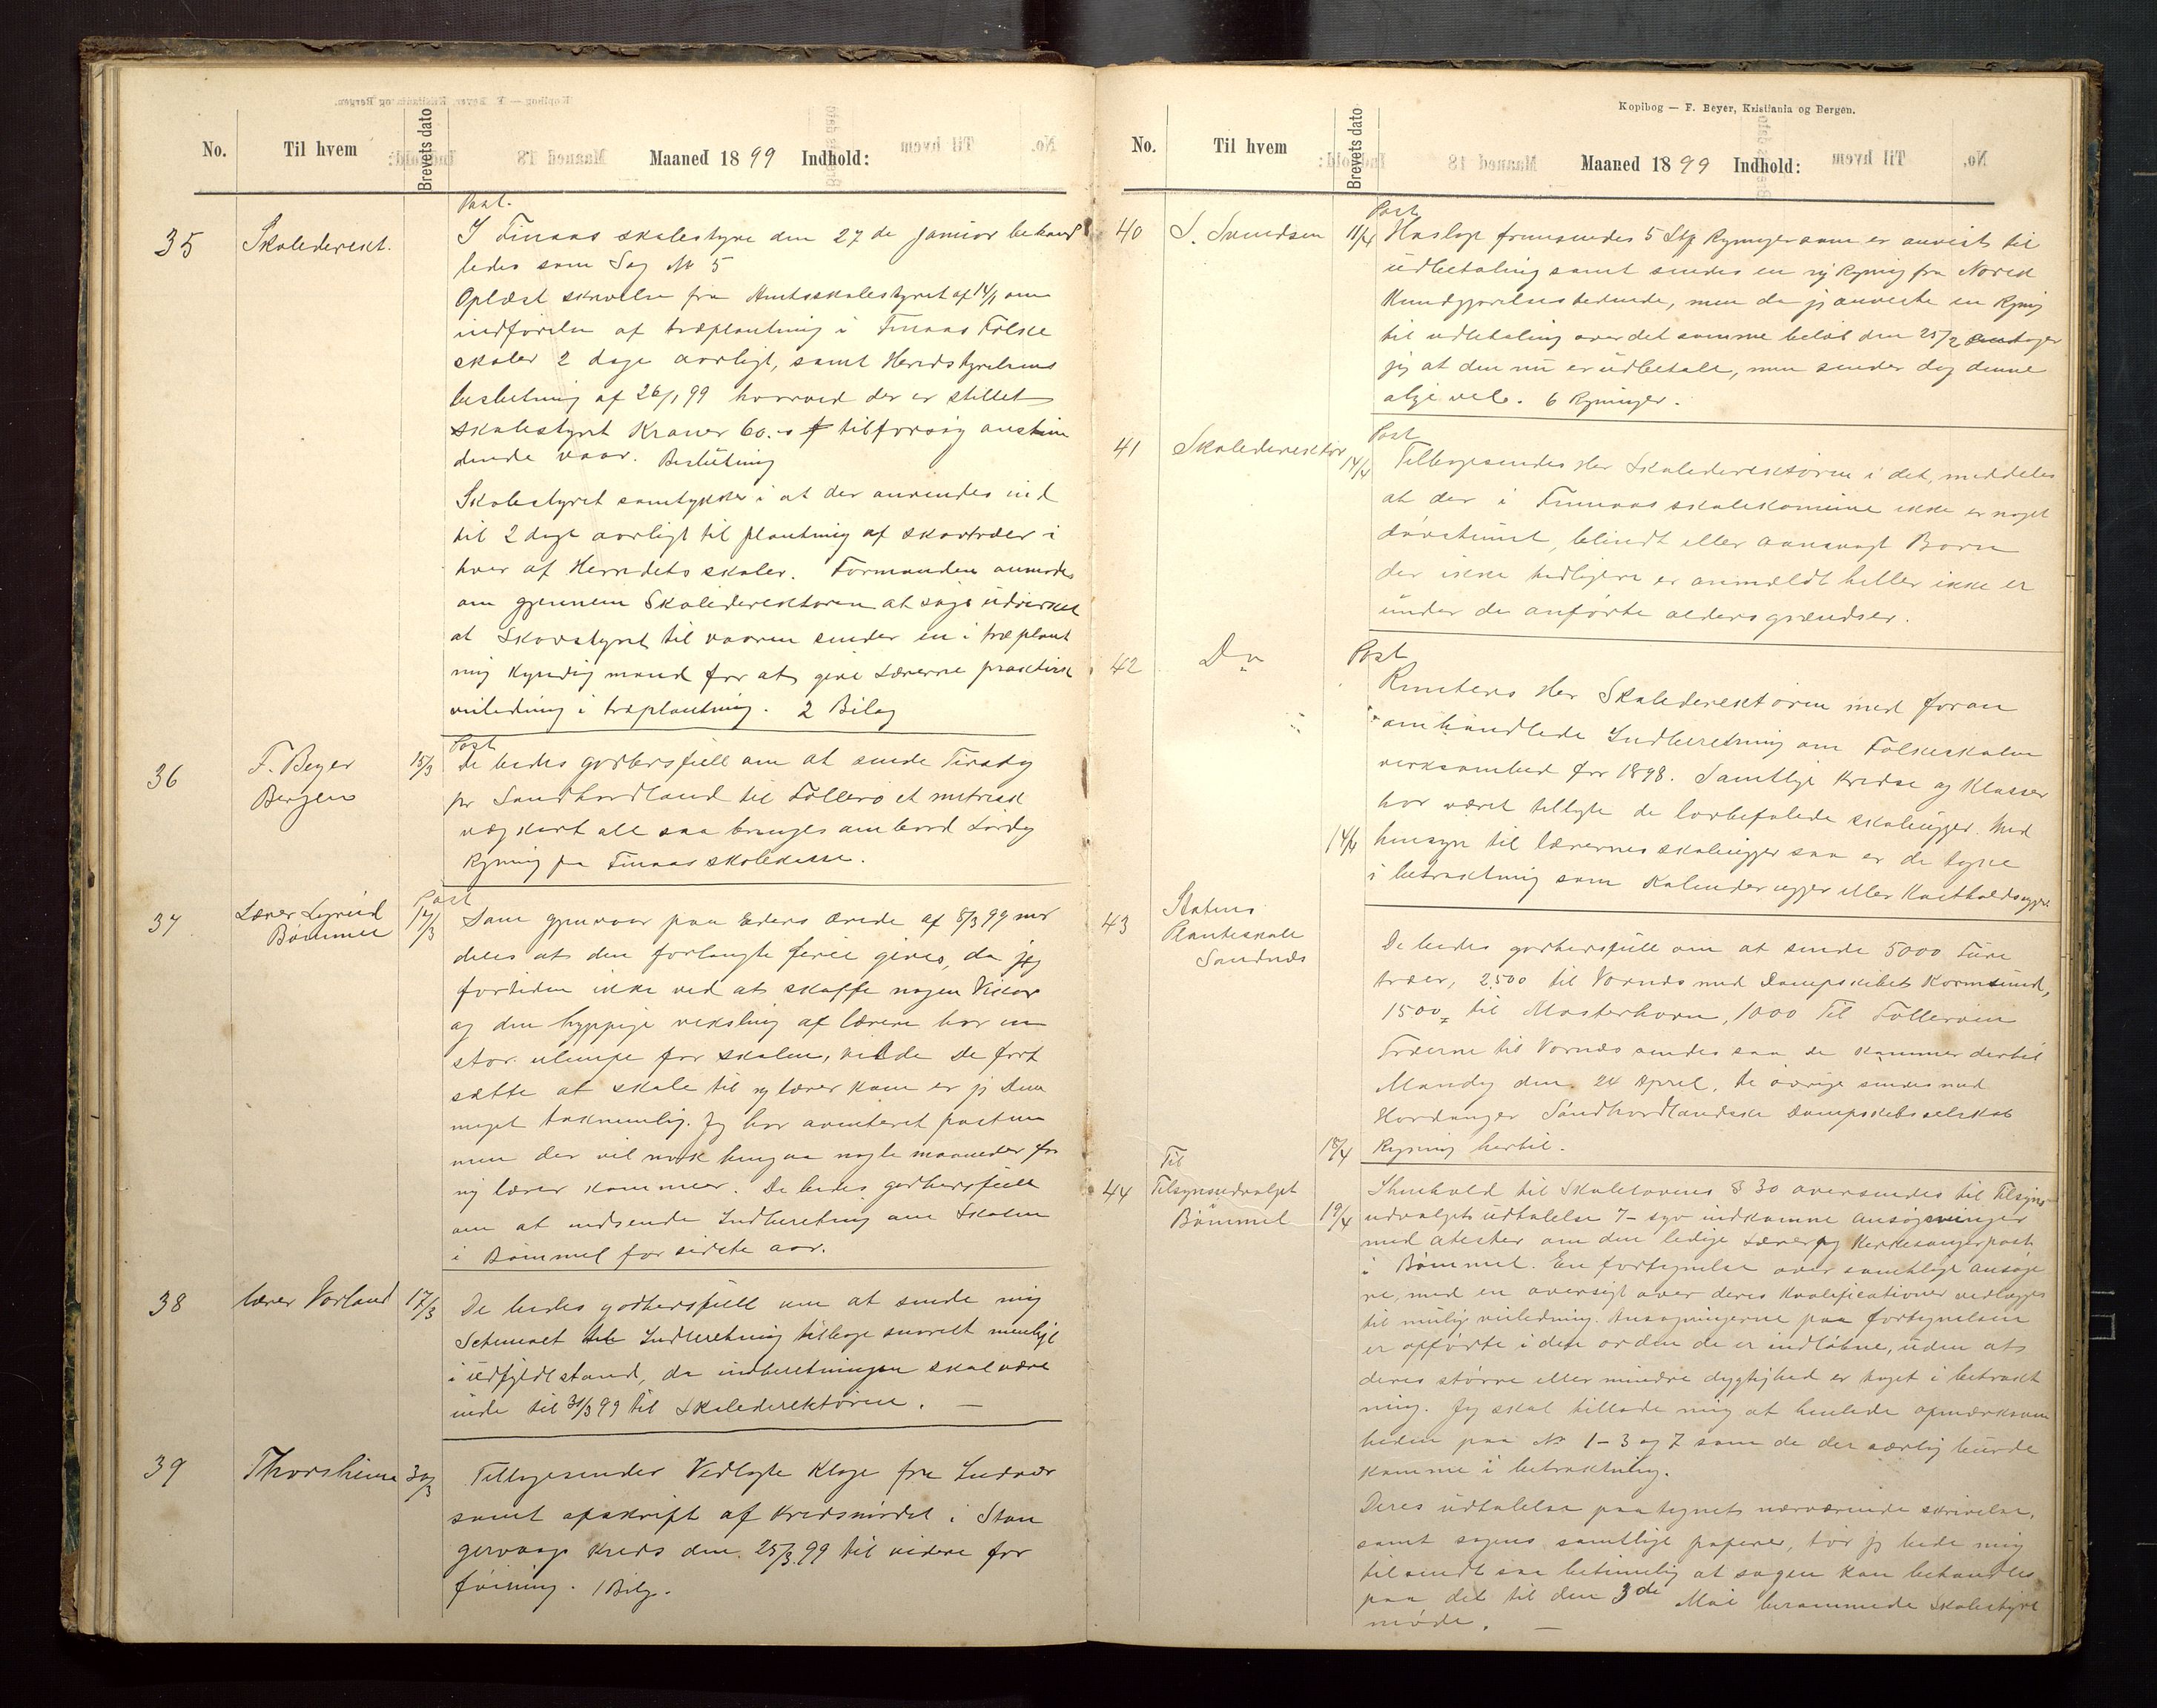 No. Til hvem Brevets dato Maaned 1899 Indhold:
Post.
35 Skoledirekt. I Finaas skolestyre den 27de Januar behand
ledes som Sag № 5
Oplæst skrivelse fra Amtsskolestyret af 14/1 om
indførelse af træplantning i Finaas Folke
skoler 2 dage aarligt, samt Heredstyrelsens
beslutning af 26/1 99 hvorved der er stillet
skolestyret Kroner 60. til forsøg
vaar. Beslutning
Skolestyret samtykker i at der anvendes ind
til 2 dage aarligt til plantning af skovtræer i
hver af Herredets skoler. Formanden anmodes
om gjennem Skoledirektøren at søge udvirket
at Skovstyret til vaaren sender en i træplant
ning kyndig mand for at give Lærerne praktisk
veiledning i træplantning. 2 Bilag
Post
36 F. Beyer 15/3 De bedes godhersfuld om at sende Tirsdag
Bergen pr Sandhordland til Folleró et metrisk
vægkart alt saa bringes ombord Lørdag
Regning paa Finaas skolekasse.
Post
37 Lærer 14/3 Som gjensvar paa Eders ærede af 8/3 99 med
Bømmel deles at den forlangte ferie gives, da jeg
fortiden ikke ved at skaffe nogen Vikar
og den hyppige veksling af lærere har en
stor ulempe for skolen, vilde De fort
sætte at skole til ny lærer kom er jeg Dem
meget taknemlig. Jeg har averteret posten
men der vil nok hengaa nogle maaneder før
ny lærer kommer. De bedes godhersfuld
om at indsende Indberetning om Skolen
i Bømmel for sidste aar.
38 lærer Vorland 17/3 De bedes godhersfuld om at sende mig
Schemaet til Indberetning tilbage snarest muligt
i udfyldt stand, da indberetningen skal være
inde til 31/3 99 til Skoledirektøren. —
39 Thorsheim 30/3 Tilbagesendes Vedlagte Klage fra
samt afskrift af Kredsmødet i Stan
gervaags Kreds den 25/3 99 til videre for
føining. 1 Bilg.
Kopibog — F. Beyer, Kristiania og Bergen.
No. Til hvem Brevets dato Maaned 1899 Indhold:
Post
40 S. Svendsen 11/4 Hoslagt fremsendes 5 Stk Regninger som er anvist til
udbetaling samt sendes en ny Regning fra Norsk
Kundgjørelsestidende, men da jeg anviste en Regning
til udbetaling over det samme beløb den 25/2 antager
jeg at den nu er udbetalt, men sender dog denne
alligevel. 6 Regninger.
Post
41 Skoledirektør 14/4 Tilbagesendes Her Skoledirektøren i det meddeles
at der i Finnaas skolekomune ikke er noget
døvstumt, blindt eller aansvagt Barn
der ikke tidligere er anmeldt heller ikke er
under de anførte aldersgrændser.
42 Do Post
Remiteres Her Skoledirektøren med foran
omhandlede Indberetning om Folkeskolens
virksomhed for 1898. Samtlige Kredse og Klasser
har været tillagte de lovbefalede skoleuger. Med
14/4 hensyn til lærernes skoleuger saa er de tagne
i betraktning som Kalenderuger eller Kostholdsuger
43 Statens
Planteskole
Sandnæs
De bedes godhersfuld om at sende 5000 Furu
træer, 2500 til Vornæs med Dampskibet Karmsund,
1500 til Mosterhavn, 1000 Til Folleróen
Træerne til Vornæs sendes saa de kommer dertil
Mandag den 24 April, de øvrige sendes med
Hardanger Søndhordlandske Dampskibsselskab
18/4 Regning hertil.
44 Til
Tilsynsudvalget
Bømmel 19/4
I henhold til Skolelovens § 30 oversendes til Tilsyns
udvalgets udtalelse 7 – syv indkomne Ansøgninger
med atester om den ledige Lærer og Kirkesangerpost
i Bømmel. En fortegnelse over samtlige ansøge
re, med en oversigt over deres Kvalificationer vedlægges
til mulig veiledning. Ansøgningerne paa fortegnelsen
er opførte i den orden de er indløbne, uden at
deres større eller mindre dygtighed er taget i betrakt
ning. Jeg skal tillade mig at henlede opmærksom
heden paa № 1–3 og 7 som de der særlig burde
komme i betraktning.
Deres udtalelse paategnet nærværende skrivelse,
samt sagens samtlige papirer, tør jeg bede mig
tilsendt saa betimelig at sagen kan behandles
paa det til den 3die Mai berammede Skolestyre
møde. —